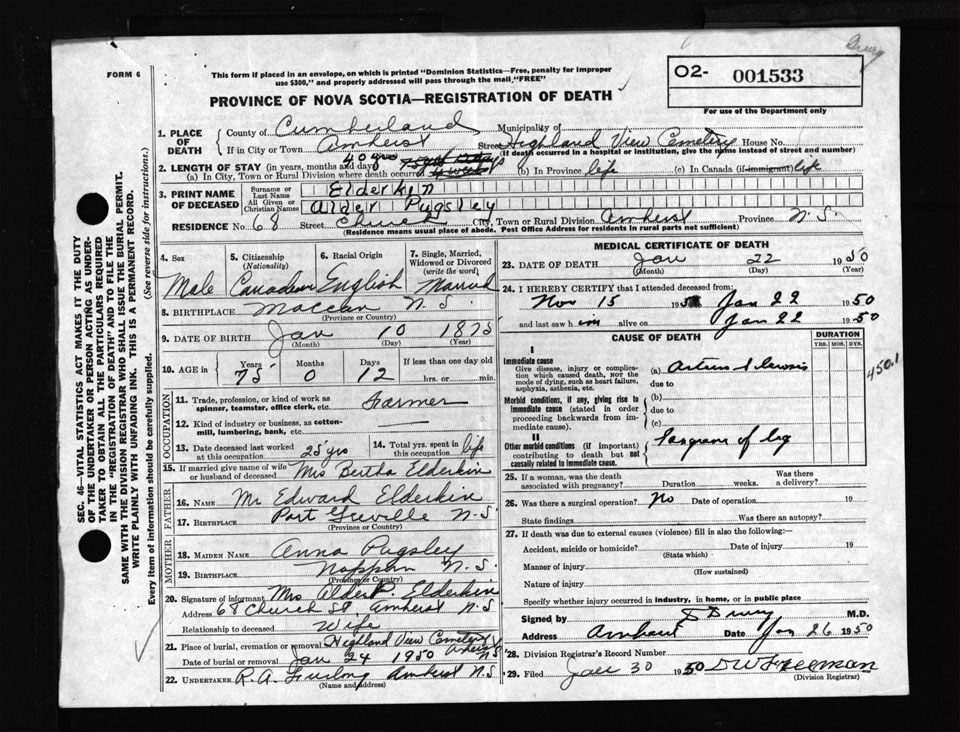 FORM 6
This form if placed in an envelope, on which is printed "Dominion Statistics—Free, penalty for improper
use $300," and properly addressed will pass through the mail "FREE"
O2- 001533
For use of the Department only
PROVINCE OF NOVA SCOTIA—REGISTRATION OF DEATH
1. PLACE OF DEATH
County of Cumberland Municipality of
If in City or Town Amherst Street Highland View Cemetery House No.
(If death occurred in a hospital or institution, give the name instead of street and number)
2. LENGTH OF STAY (in years, months and days) 40 yrs
(a) In City, Town or Rural Division where death occurred (b) In Province life (c) In Canada (if immigrant) life
3. PRINT NAME OF DECEASED
Surname or Last Name Elderkin
All Given or Christian Names Alder Pugsley
RESIDENCE No. 68 Street Church City, Town or Rural Division Amherst Province N.S.
(Residence means usual place of abode. Post Office Address for residents in rural parts not sufficient)
4. Sex 5. Citizenship (Nationality) 6. Racial Origin 7. Single, Married, Widowed or Divorced (write the word)
Male Canadian English Married
8. BIRTHPLACE Maccan N.S.
(Province or Country)
9. DATE OF BIRTH Jan 10 1875
(Month) (Day) (Year)
10. AGE in Years Months Days If less than one day old
75 0 12 hrs. or min.
OCCUPATION
11. Trade, profession, or kind of work as spinner, teamster, office clerk, etc. Farmer
12. Kind of industry or business, as cotton-mill, lumbering, bank, etc. —
13. Date deceased last worked at this occupation 25 yrs 14. Total yrs. spent in this occupation life
15. If married give name of wife or husband of deceased Mrs Bertha Elderkin
FATHER
16. NAME Mr Edward Elderkin
17. BIRTHPLACE Port Greville N.S.
(Province or Country)
MOTHER
18. MAIDEN NAME Anna Pugsley
19. BIRTHPLACE Nappan N.S.
(Province or Country)
20. Signature of informant Mrs Alder P. Elderkin
Address 68 Church St, Amherst N.S
Relationship to deceased Wife
21. Place of burial, cremation or removal Highland View Cemetery Amherst N.S
Date of burial or removal Jan 24 1950
22. UNDERTAKER R.A. Furlong Amherst N.S
(Name and address)
MEDICAL CERTIFICATE OF DEATH
23. DATE OF DEATH Jan 22 1950
(Month) (Day) (Year)
24. I HEREBY CERTIFY that I attended deceased from:
Nov 15 19 Jan 22 1950
and last saw him alive on Jan 22 1950
CAUSE OF DEATH
DURATION
YRS. MOS. DYS.
I
Immediate cause
Give disease, injury or complication which caused death, NOT the mode of dying, such as heart failure, asphyxia, asthenia, etc.
(a)
due to
Morbid conditions, if any, giving rise to immediate cause (stated in order proceeding backwards from immediate cause).
(b)
due to
(c)
II
Other morbid conditions (if important) contributing to death but not causally related to immediate cause.
Gangrene of leg
450.1
25. If a woman, was the death associated with pregnancy? Duration weeks. Was there a delivery?
26. Was there a surgical operation? No Date of operation 19
State findings Was there an autopsy?
27. If death was due to external causes (violence) fill in also the following:—
Accident, suicide or homicide? Date of injury 19
(State which)
Manner of injury
(How sustained)
Nature of injury
Specify whether injury occurred in industry, in home, or in public place
Signed by M.D.
Address Amherst Date Jan 26 1950
28. Division Registrar's Record Number
29. Filed Jan 30 1950 D W Freeman
(Division Registrar)
SEC. 46—VITAL STATISTICS ACT MAKES IT THE DUTY
OF THE UNDERTAKER OR PERSON ACTING AS UNDER-
TAKER TO OBTAIN ALL THE PARTICULARS REQUIRED
IN THE "REGISTRATION OF DEATH" AND TO FILE THE
SAME WITH THE DIVISION REGISTRAR WHO SHALL ISSUE THE BURIAL PERMIT.
WRITE PLAINLY WITH UNFADING INK. THIS IS A PERMANENT RECORD.
Every item of information should be carefully supplied. (See reverse side for instructions.)